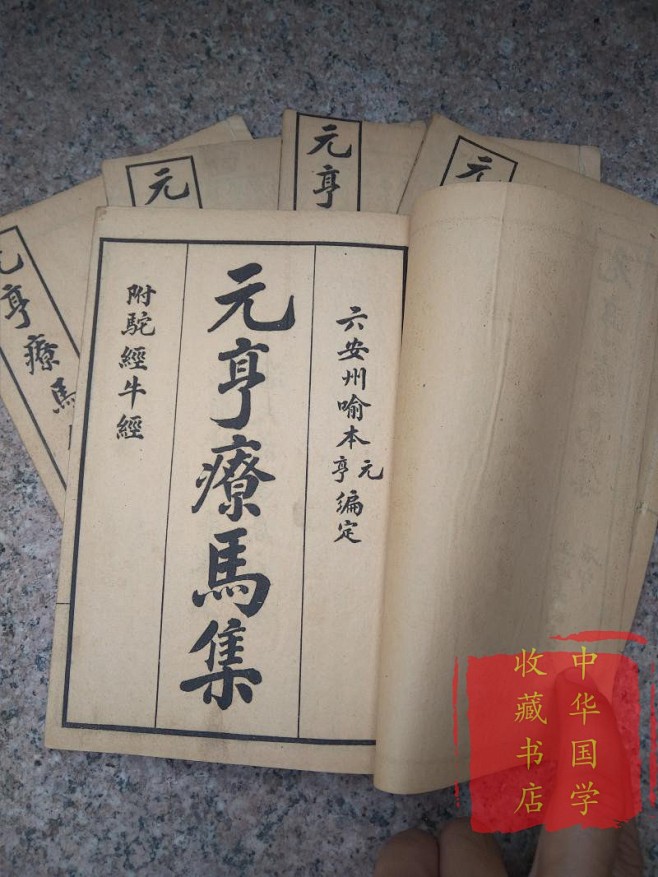 六安州喻本元亨編定
元亨療馬集
附駝經牛經
元
元亨
元
元亨療馬
中华国学
收藏书店